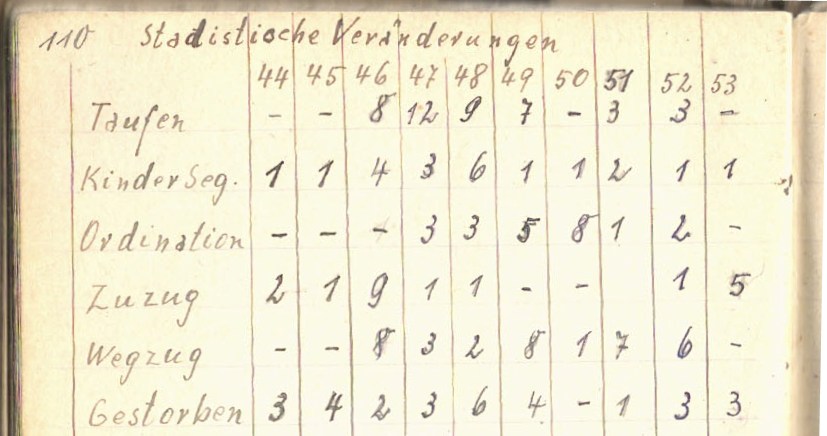 110 Stadistische Veränderungen
44 45 46 47 48 49 50 51 52 53
Taufen - - 8 12 9 7 - 3 3 -
Kinder Seg. 1 1 4 3 6 1 1 2 1 1
Ordination - - - 3 3 5 8 1 2 -
Zuzug 2 1 9 1 1 - - 1 5
Wegzug - - 8 3 2 8 1 7 6 -
Gestorben 3 4 2 3 6 4 - 1 3 3